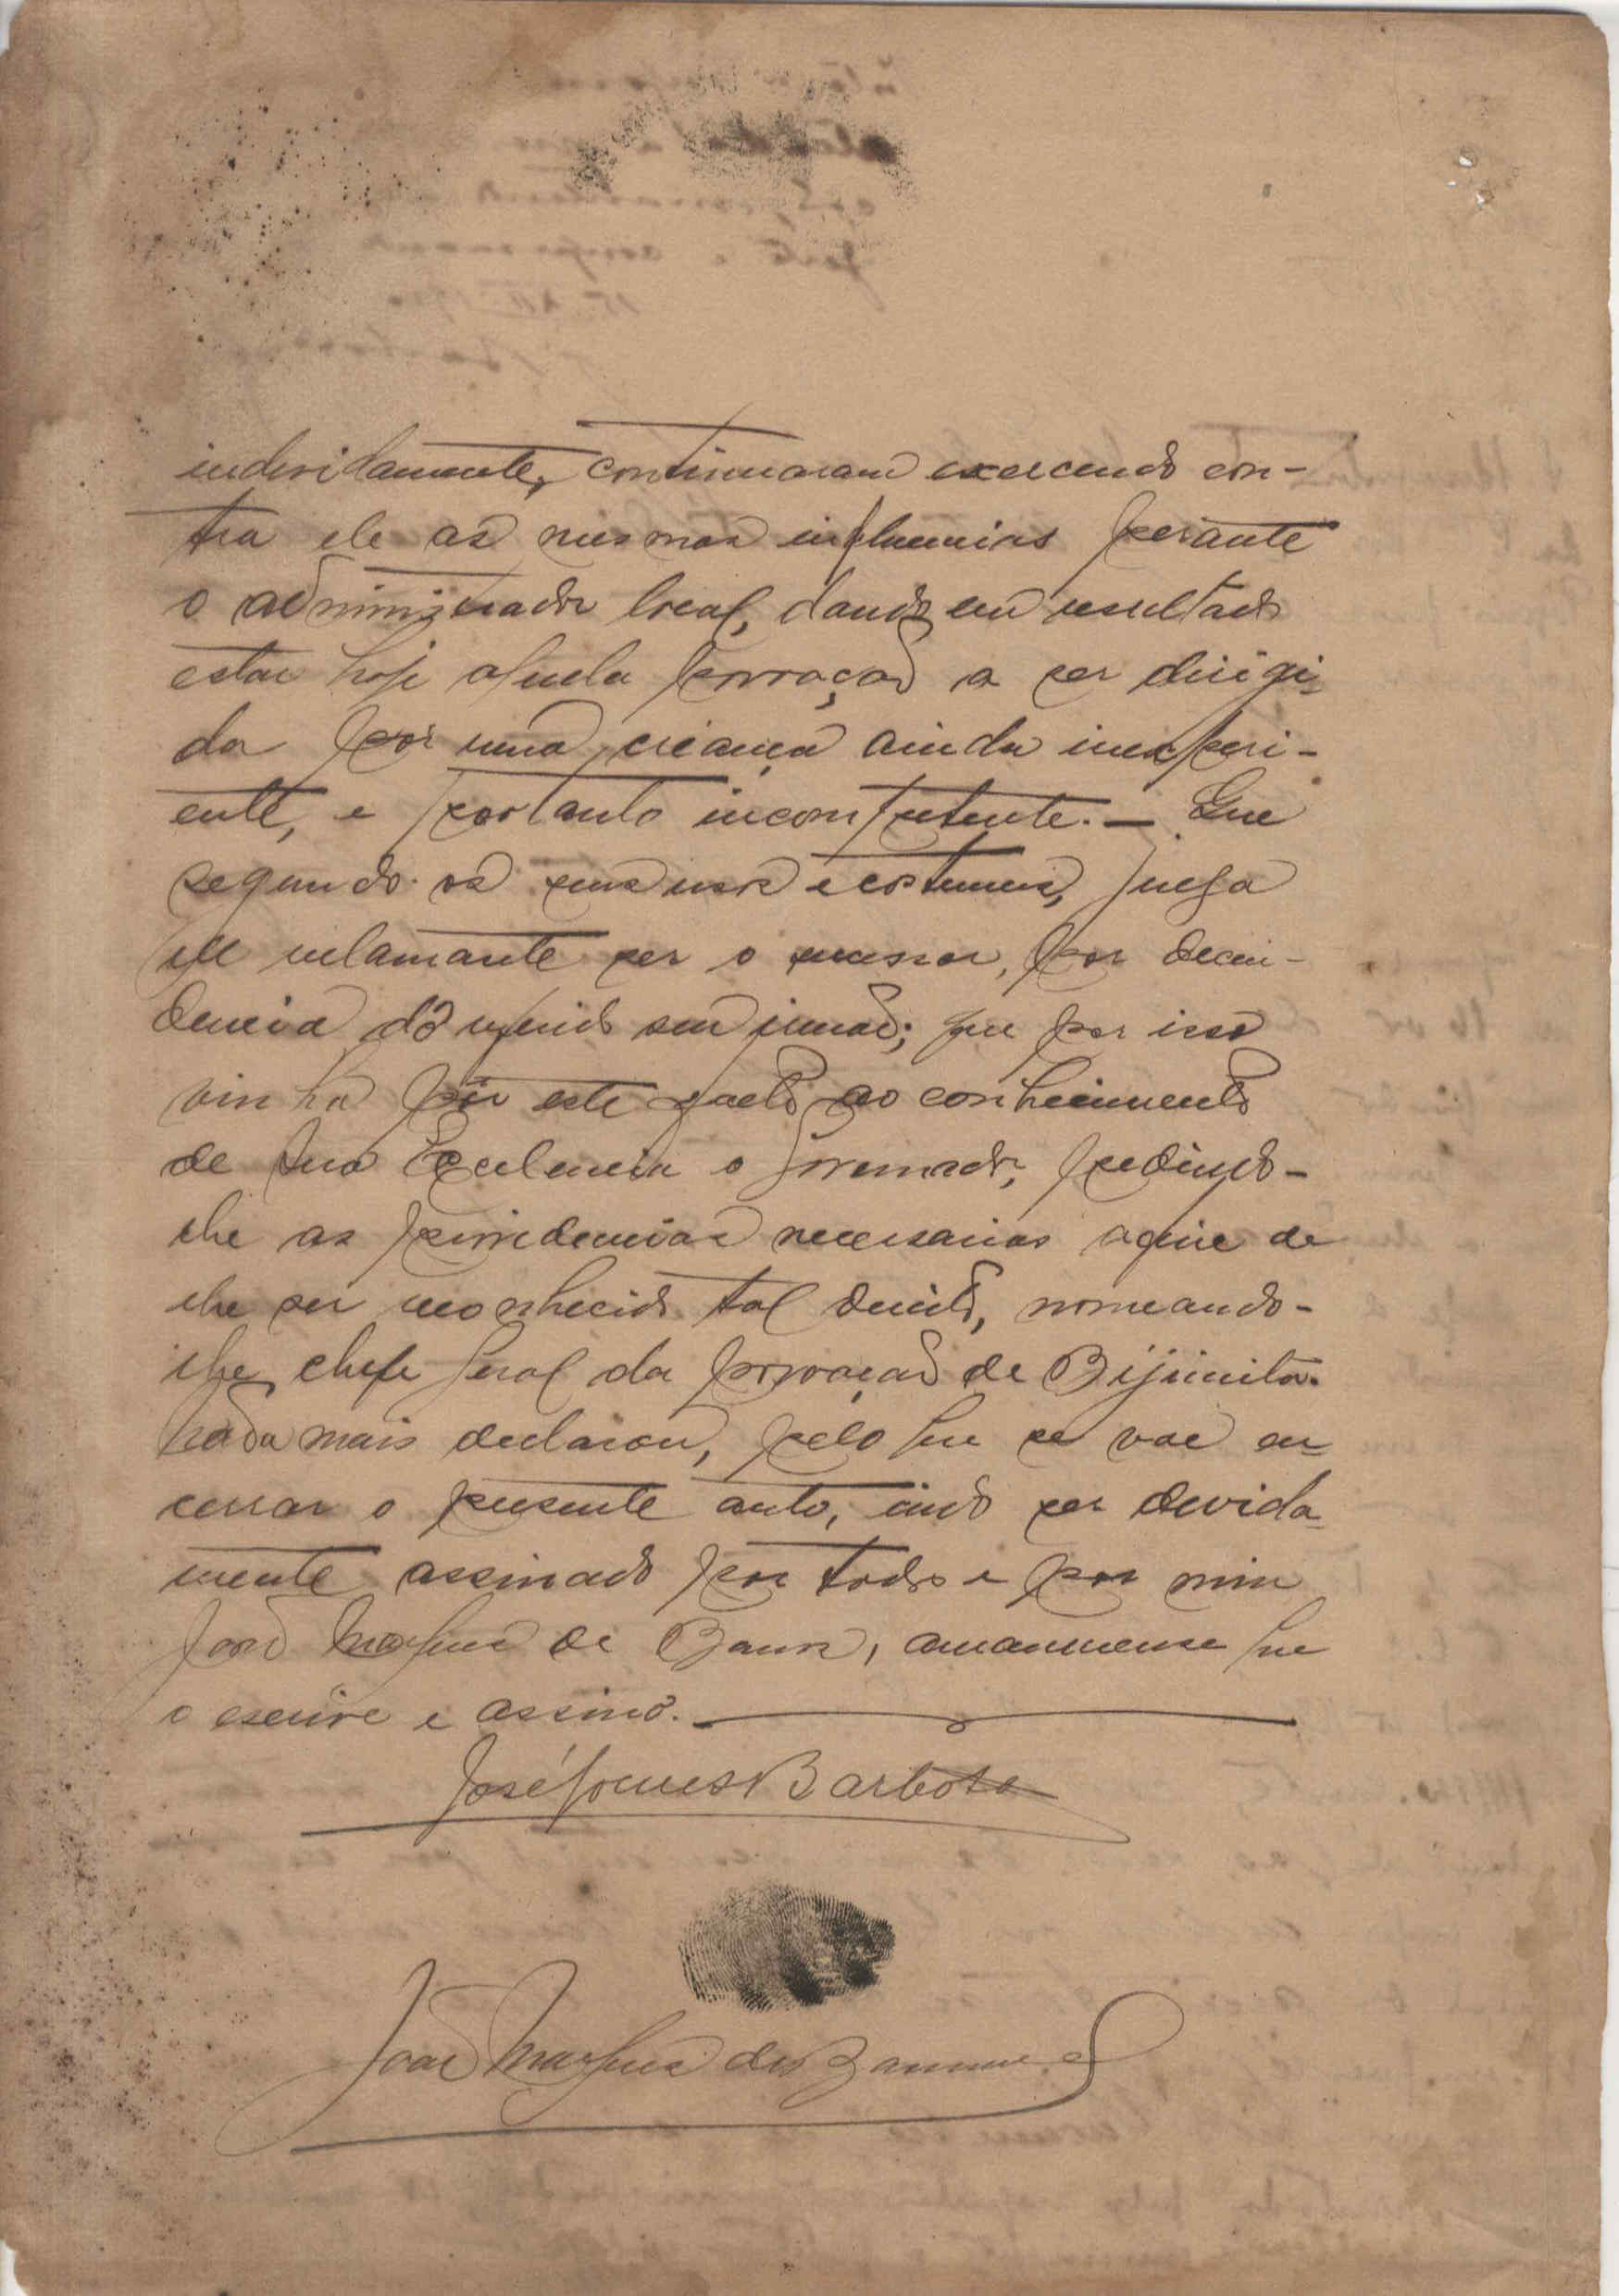 indevidamente, continuaram exercendo con-
tra ele as mesmas influencias perante
o administrador local, dando em resultado
estar hoje aquela povoação a ser dirigi-
da por uma creança ainda inexperi-
ente, e portanto incompetente. — Que
segundo os seus usos e costumes, julga
ele reclamante ser o sucessor, por decen-
dencia do referido seu irmão; que por isso
vinha por este facto ao conhecimento
de Sua Excelencia o Governador, pedindo-
lhe as providencias necessarias afim de
lhe ser reconhecido tal direito, nomeando-
lhe chefe geral da povoação de Bijimita.
Nada mais declarou, pelo que se vae en-
cerrar o presente auto, indo ser devida-
mente assinado por todos e por mim
João Marques de Barros, amanuense que
o escrevi e assino.
José Gomes Barbosa
João Marques de Barros